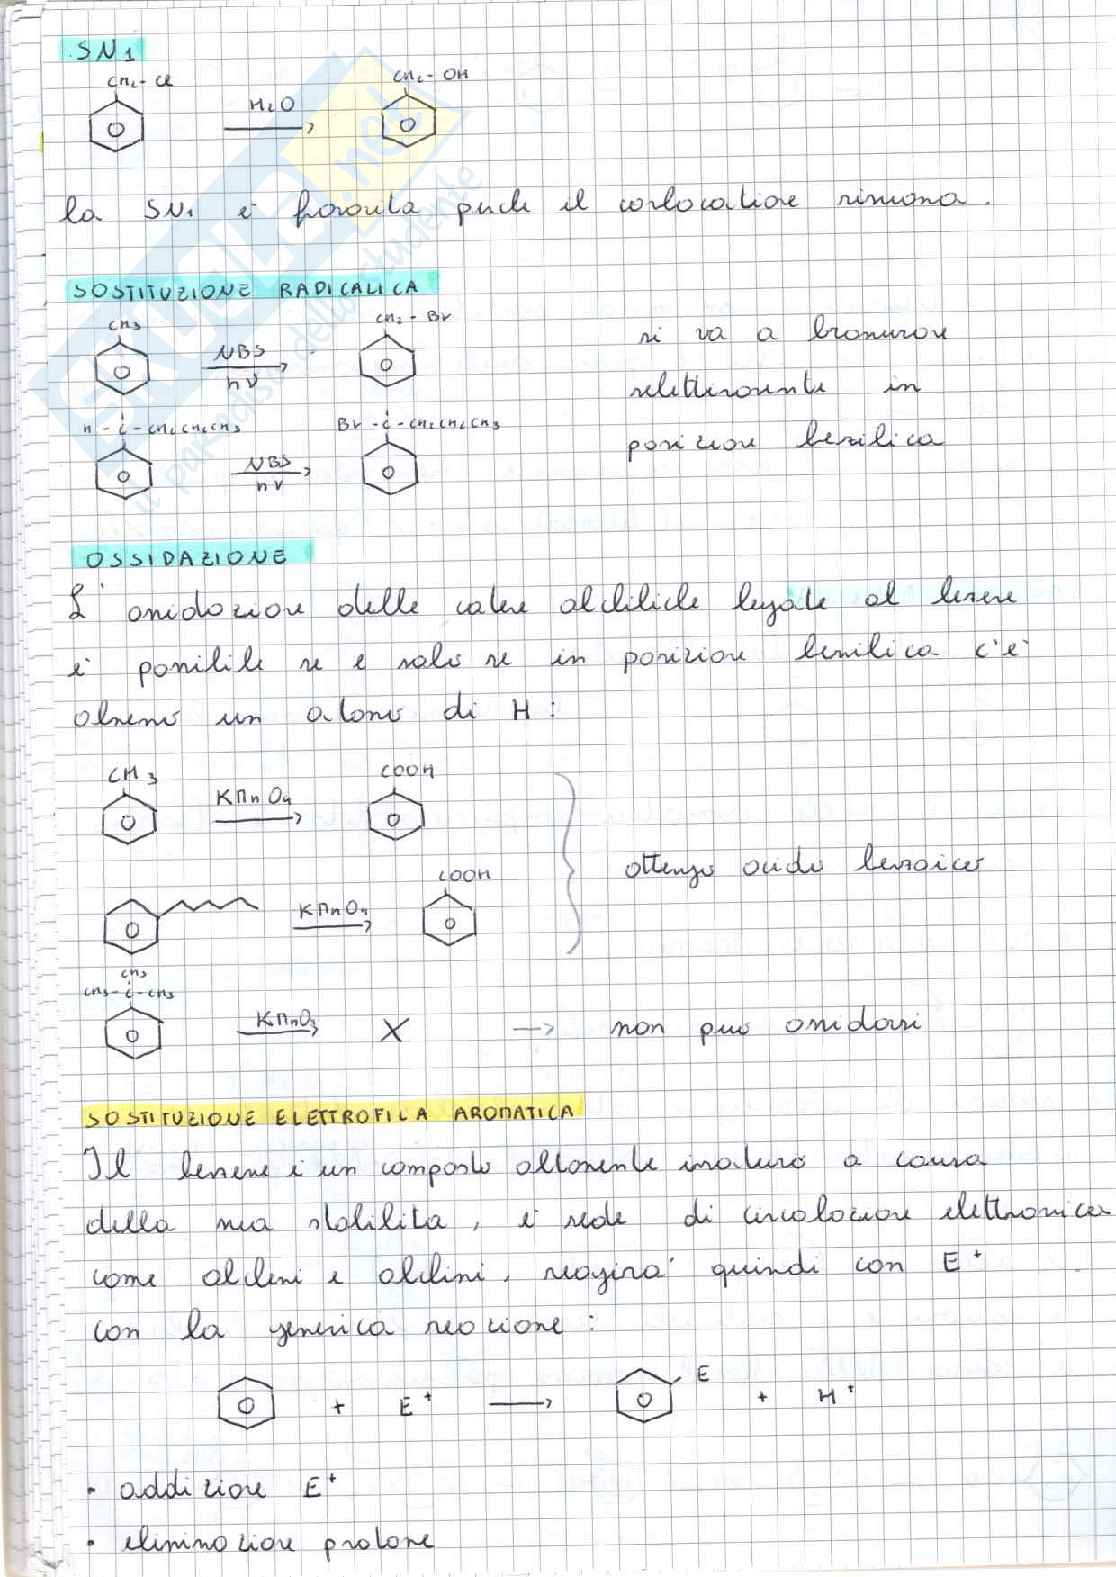 .SN1
CH2-Cl
CH2-OH
H2O
la SN1 è favorita perché il carbocatione risuona.
SOSTITUZIONE RADICALICA
CH3
CH2-Br
NBS
hν
si va a bromurare
selettivamente in
posizione benzilica
H-C-CH2CH2CH3
Br-C-CH2CH2CH3
NBS
hν
OSSIDAZIONE
L'ossidazione delle catene alchiliche legate al benzene
è possibile se e solo se in posizione benzilica c'è
almeno un atomo di H:
CH3
COOH
KMnO4
ottengo acido benzoico
COOH
KMnO4
CH3
CH3-C-CH3
KMnO3
X → non può ossidarsi
SOSTITUZIONE ELETTROFILA AROMATICA
Il benzene è un composto altamente insaturo a causa
della sua stabilità, è sede di circolazione elettronica
come alcheni e alchini, reagirà quindi con E+
con la generica reazione:
+ E+ → E + H+
• addizione E+
• eliminazione protone